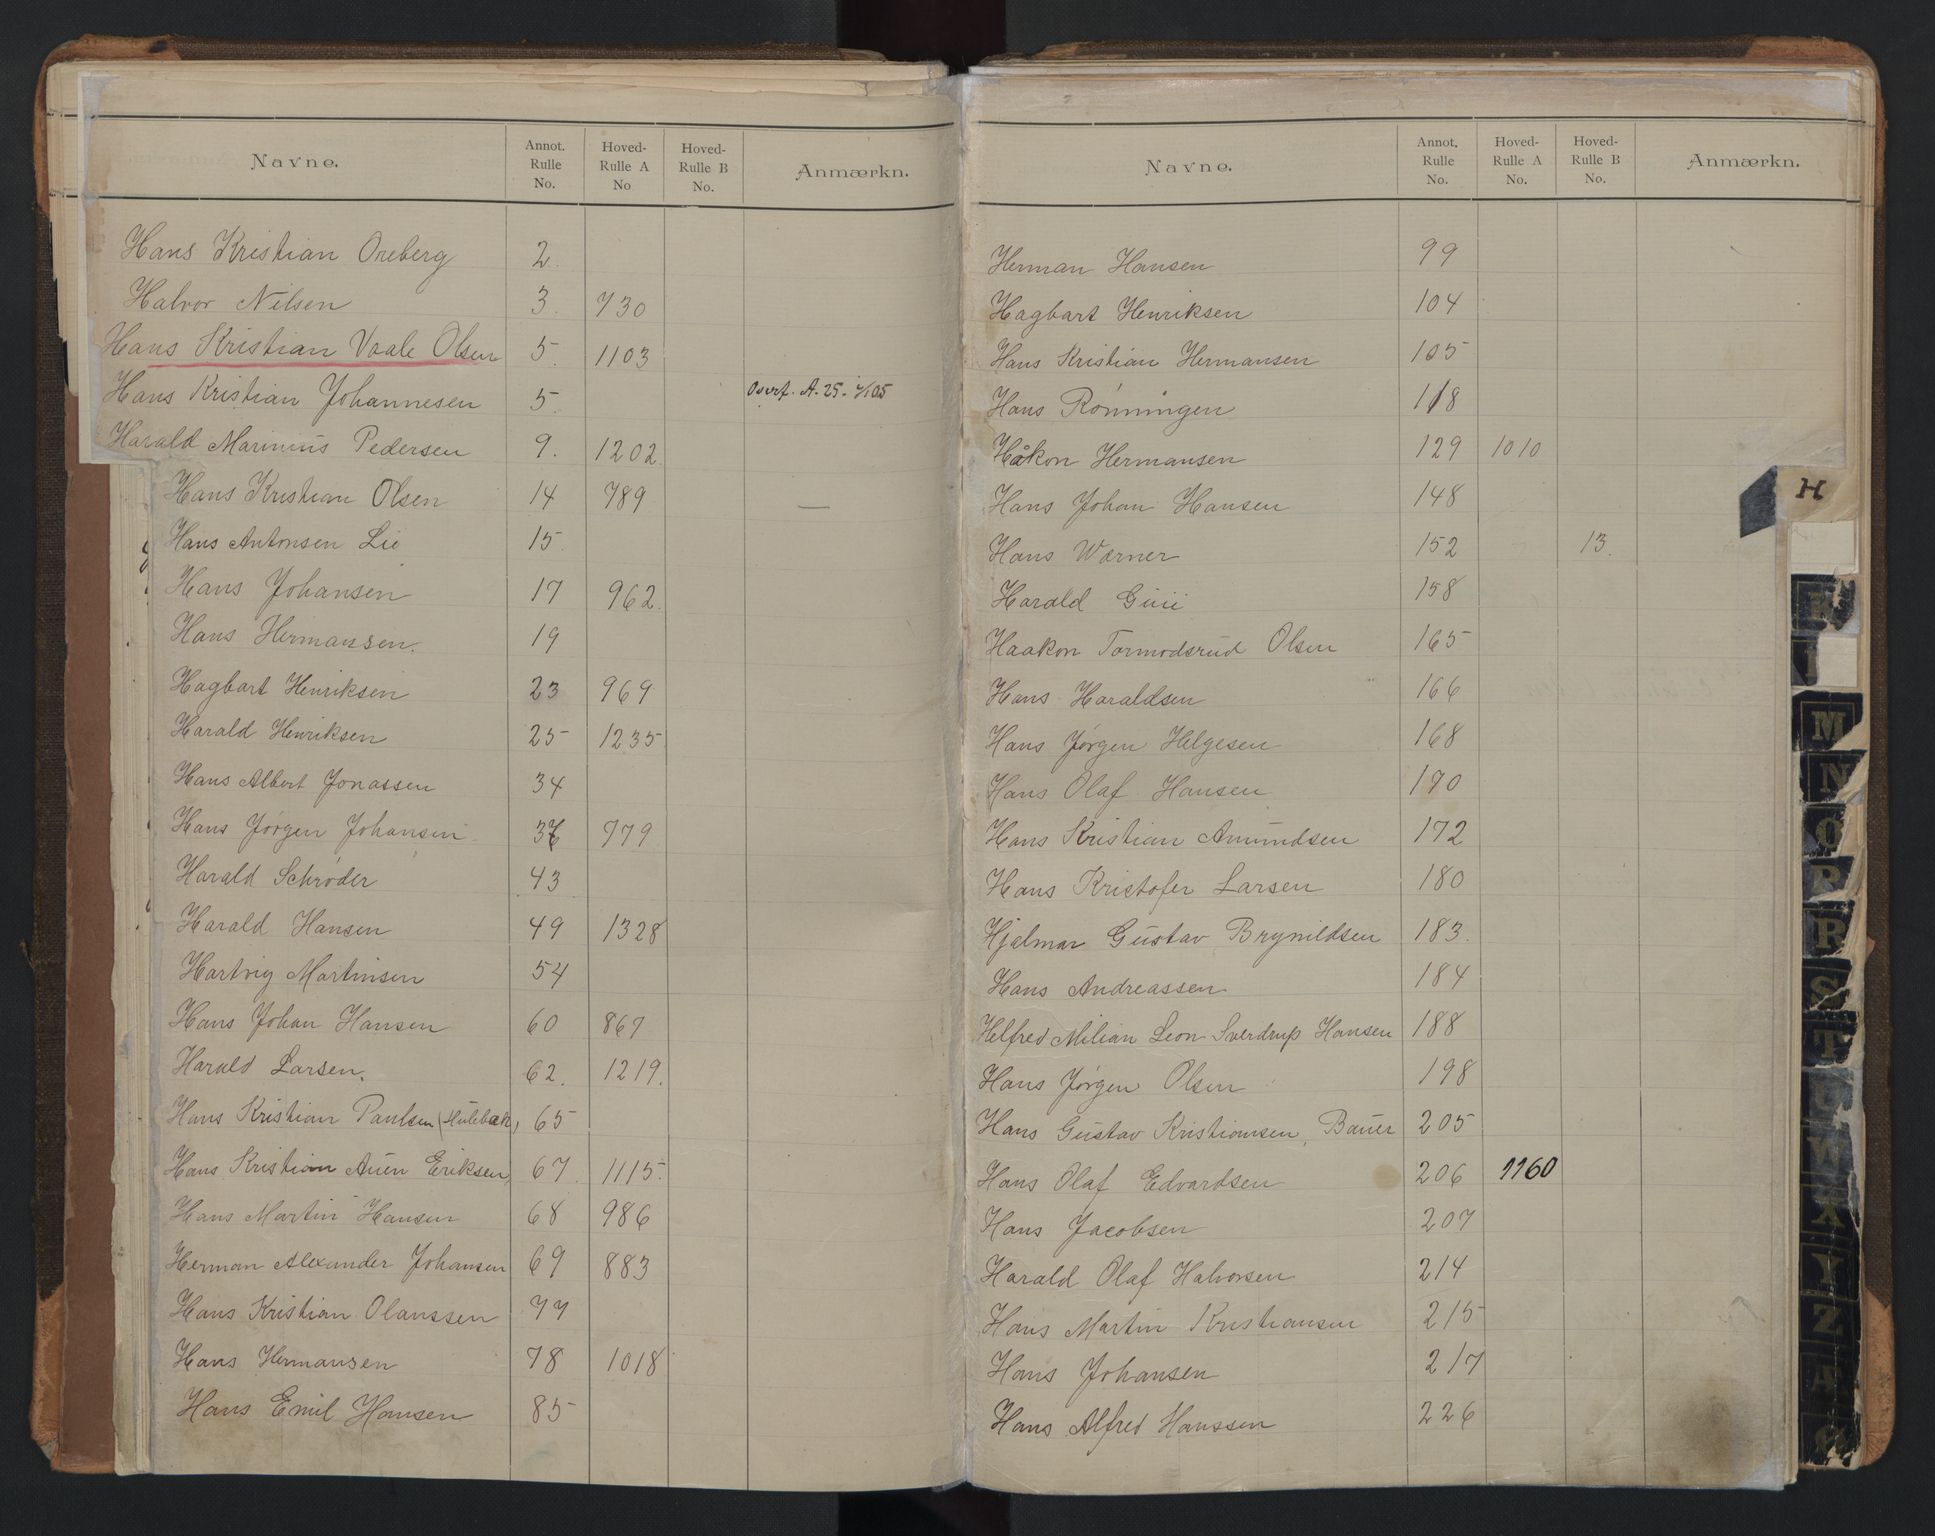 Navne. Annot. Rulle No. Hoved-Rulle A No Hoved-Rulle B No. Anmærkn.
Hans Kristian Oreberg 2.
Halvor Nilsen 3. 730
Hans Kristian Vaale Olsen 5. 1103
Hans Kristian Johannesen 5. Overf. A. 25.
Harald Marinius Pedersen 9. 1202.
Hans Kristian Olsen 14 789 —
Hans Antonsen Lie 15.
Hans Johansen 17 962.
Hans Hermansen. 19
Hagbart Henriksen 23 969
Harald Henriksen 25 1235
Hans Albert Jonassen 34
Hans Jørgen Johansen 779
Harald Schrøder 43
Harald Hansen 49 1328
Hartvig Martinsen 54
Hans Johan Hansen 60 867
Harald Larsen. 62. 1219.
Hans Kristian Paulsen (Hulebæk) 65
Hans Kristian Auen Eriksen, 67. 1115.
Hans Martin Hansen 68 986
Herman Alexander Johansen 69 883
Hans Kristian Olanssen 77
Hans Hermansen 78 1018
Hans Emil Hansen 85
Navne. Annot. Rulle No. Hoved-Rulle A No. Hoved-Rulle B No. Anmærkn.
Herman Hansen 99
Hagbart Henriksen 104
Hans Kristian Hermansen 105
Hans Rønningen 118
Håkon Hermansen 129 1010
Hans Johan Hansen 148
Hans Wærner 152 13.
Harald 158
Haakon Tormodsrud Olsen 165
Hans Haraldsen 166
Hans Jørgen Helgesen 168
Hans Olaf Hansen 190
Hans Kristian Amundsen 172
Hans Kristofer Larsen 180
Hjalmar Gustav Brynildsen 183.
Hans Andreassen 184
Helfred Milian Leon Sverdrup Hansen 188
Hans Jørgen Olsen 198
Hans Gustav Kristiansen, Bauer 205
Hans Olaf Edvardsen 206 1160
Hans Jacobsen 207
Harald Olaf Halvorsen 214
Hans Martin Kristiansen 215
Hans Johansen 217
Hans Alfred Hanssen 226
H
K
L
M
N
O
P
R
S
T
U
W
X
Y
Z